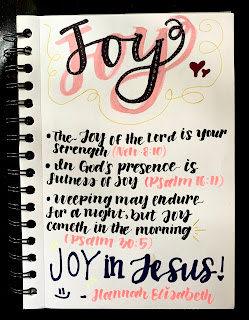 Joy
• The Joy of the Lord is your
strength (Neh 8:10)
• In God's presence is
fulness of Joy (Psalm 16:11)
• weeping may endure
for a night, but Joy
cometh in the morning
(Psalm 30:5)
JOY in Jesus!
- Hannah Elizabeth